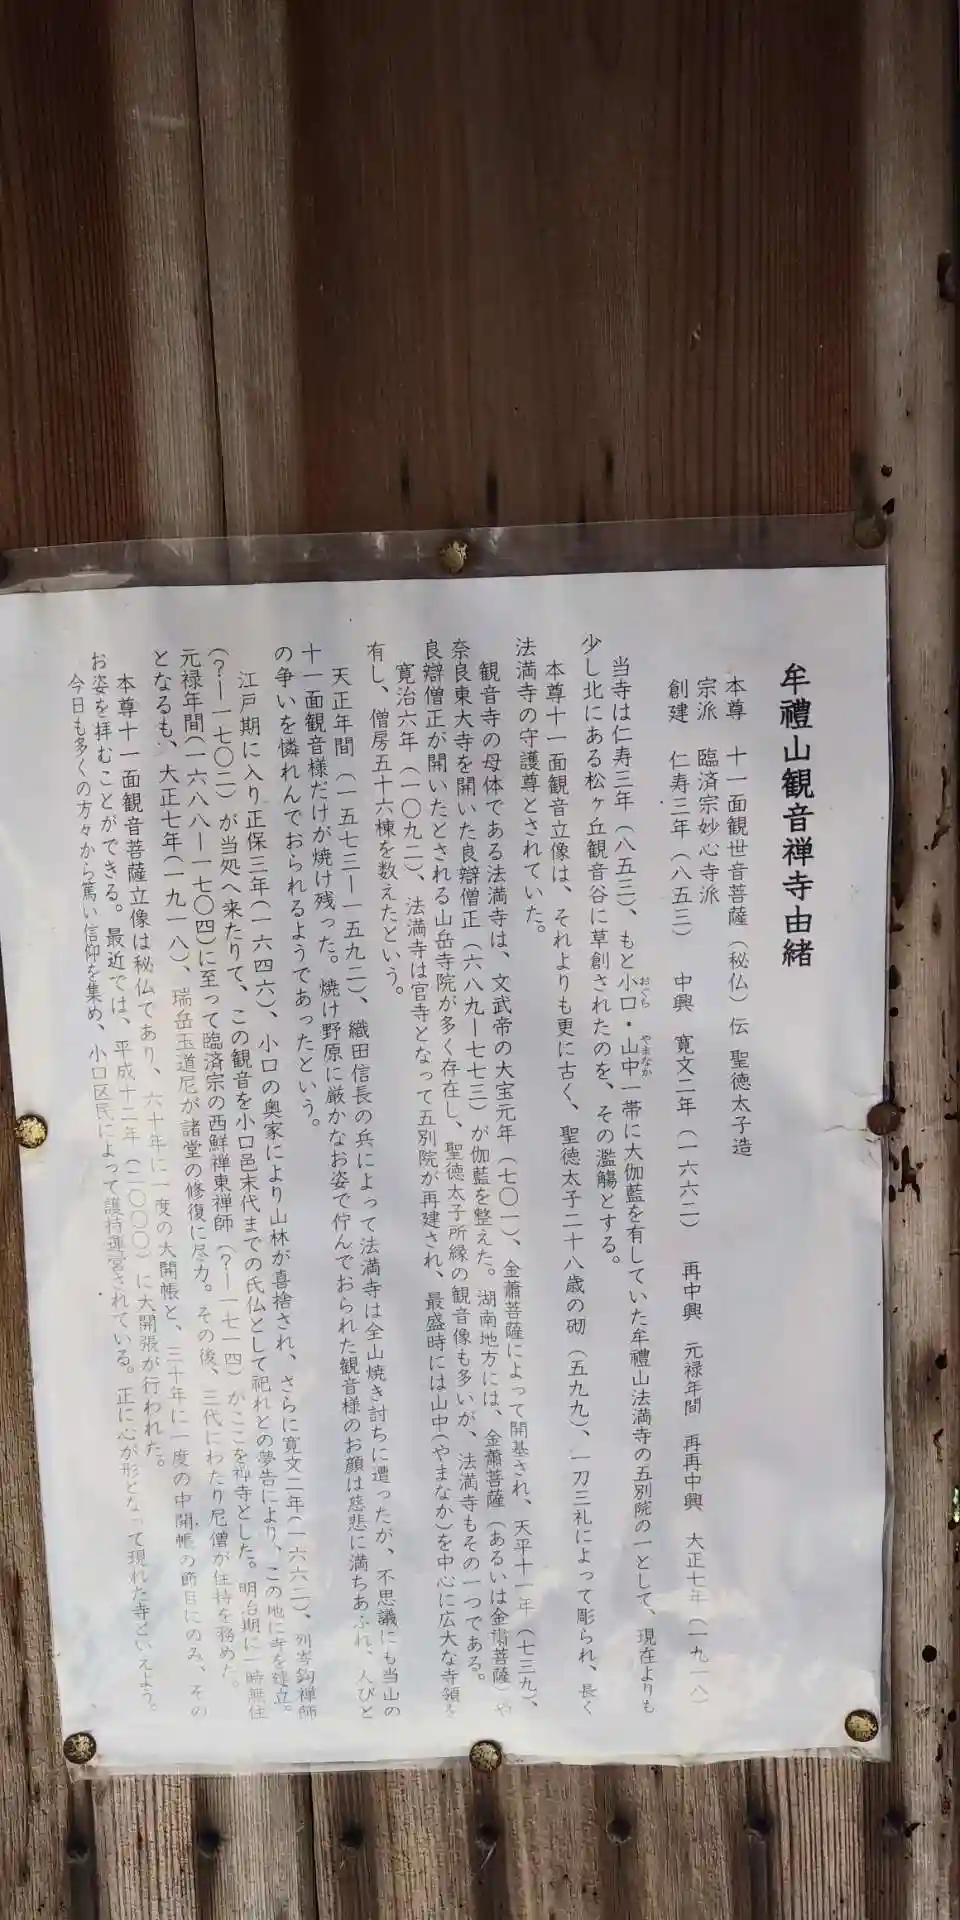 牟禮山観音禅寺由緒
本尊 十一面観世音菩薩(秘仏)伝 聖徳太子造
宗派 臨済宗妙心寺派
創建 仁寿三年(八五三) 中興 寛文二年(一六六二) 再中興 元禄年間 再再中興 大正七年(一九一八)
当寺は仁寿三年(八五三)、もと小口・山中一帯に大伽藍を有していた牟禮山法満寺の五別院の一として、現在よりも
おぐち やまなか
少し北にある松ヶ丘観音谷に草創されたのを、その濫觴とする。
本尊十一面観音立像は、それよりも更に古く、聖徳太子二十八歳の砌(五九九)、一刀三礼によって彫られ、長く
法満寺の守護尊とされていた。
観音寺の母体である法満寺は、文武帝の大宝元年(七〇一)、金蕭菩薩によって開基され、天平十一年(七三九)、
奈良東大寺を開いた良辯僧正(六八九ー七七三)が伽藍を整えた。湖南地方には、金蕭菩薩(あるいは金粛菩薩)や
良辯僧正が開いたとされる山岳寺院が多く存在し、聖徳太子所縁の観音像も多いが、法満寺もその一つである。
寛治六年(一〇九二)、法満寺は官寺となって五別院が再建され、最盛時には山中(やまなか)を中心に広大な寺領を
有し、僧房五十六棟を数えたという。
天正年間(一五七三ー一五九二)、織田信長の兵によって法満寺は全山焼き討ちに遭ったが、不思議にも当山の
十一面観音様だけが焼け残った。焼け野原に厳かなお姿で佇んでおられた観音様のお顔は慈悲に満ちあふれ、人びと
の争いを憐れんでおられるようであったという。
江戸期に入り正保三年(一六四六)、小口の奥家により山林が喜捨され、さらに寛文二年(一六六二)、列岑鈎禅師
(?ー一七〇二)が当処へ来たりて、この観音を小口邑末代までの氏仏として祀れとの夢告により、この地に寺を建立。
元禄年間(一六八八ー一七〇四)に至って臨済宗の西鮮禅東禅師(?ー一七一四)がここを禅寺とした。明治期に一時無住
となるも、大正七年(一九一八)、瑞岳玉道尼が諸堂の修復に尽力。その後、三代にわたり尼僧が住持を務めた。
本尊十一面観音菩薩立像は秘仏であり、六十年に一度の大開帳と、三十年に一度の中開帳の節目にのみ、その
お姿を拝むことができる。最近では、平成十二年(二〇〇〇)に大開張が行われた。
今日も多くの方々から篤い信仰を集め、小口区民によって護持運営されている。正に心が形となって現れた寺といえよう。